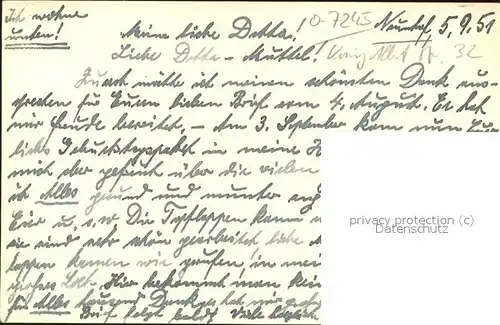 Ich wohne
unten!
Meine liebe Detta! 0-7245 Naunhof, 5.9.51
Liebe Detta-Muttel! König Albert Str. 32
Zuerst möchte ich meinen schönsten Dank aus-
sprechen für Euern lieben Brief vom 4. August. Er hat
mir Freude bereitet. – Am 3. September kam nun Euer
liebes Geburtstagspaket in meine
mich sehr gefreut über die vielen
ich Alles gesund und munter
Eier u.s.w. Die Topflappen kann
sie sind sehr schön gearbeitet liebe
lappen kamen wie gerufen, in mei
großes Loch. Hier bekommt man kein
für Alles tausend Dank, es hat mir große
Brief folgt bald! Viele herzliche
privacy protection (c)
Datenschutz